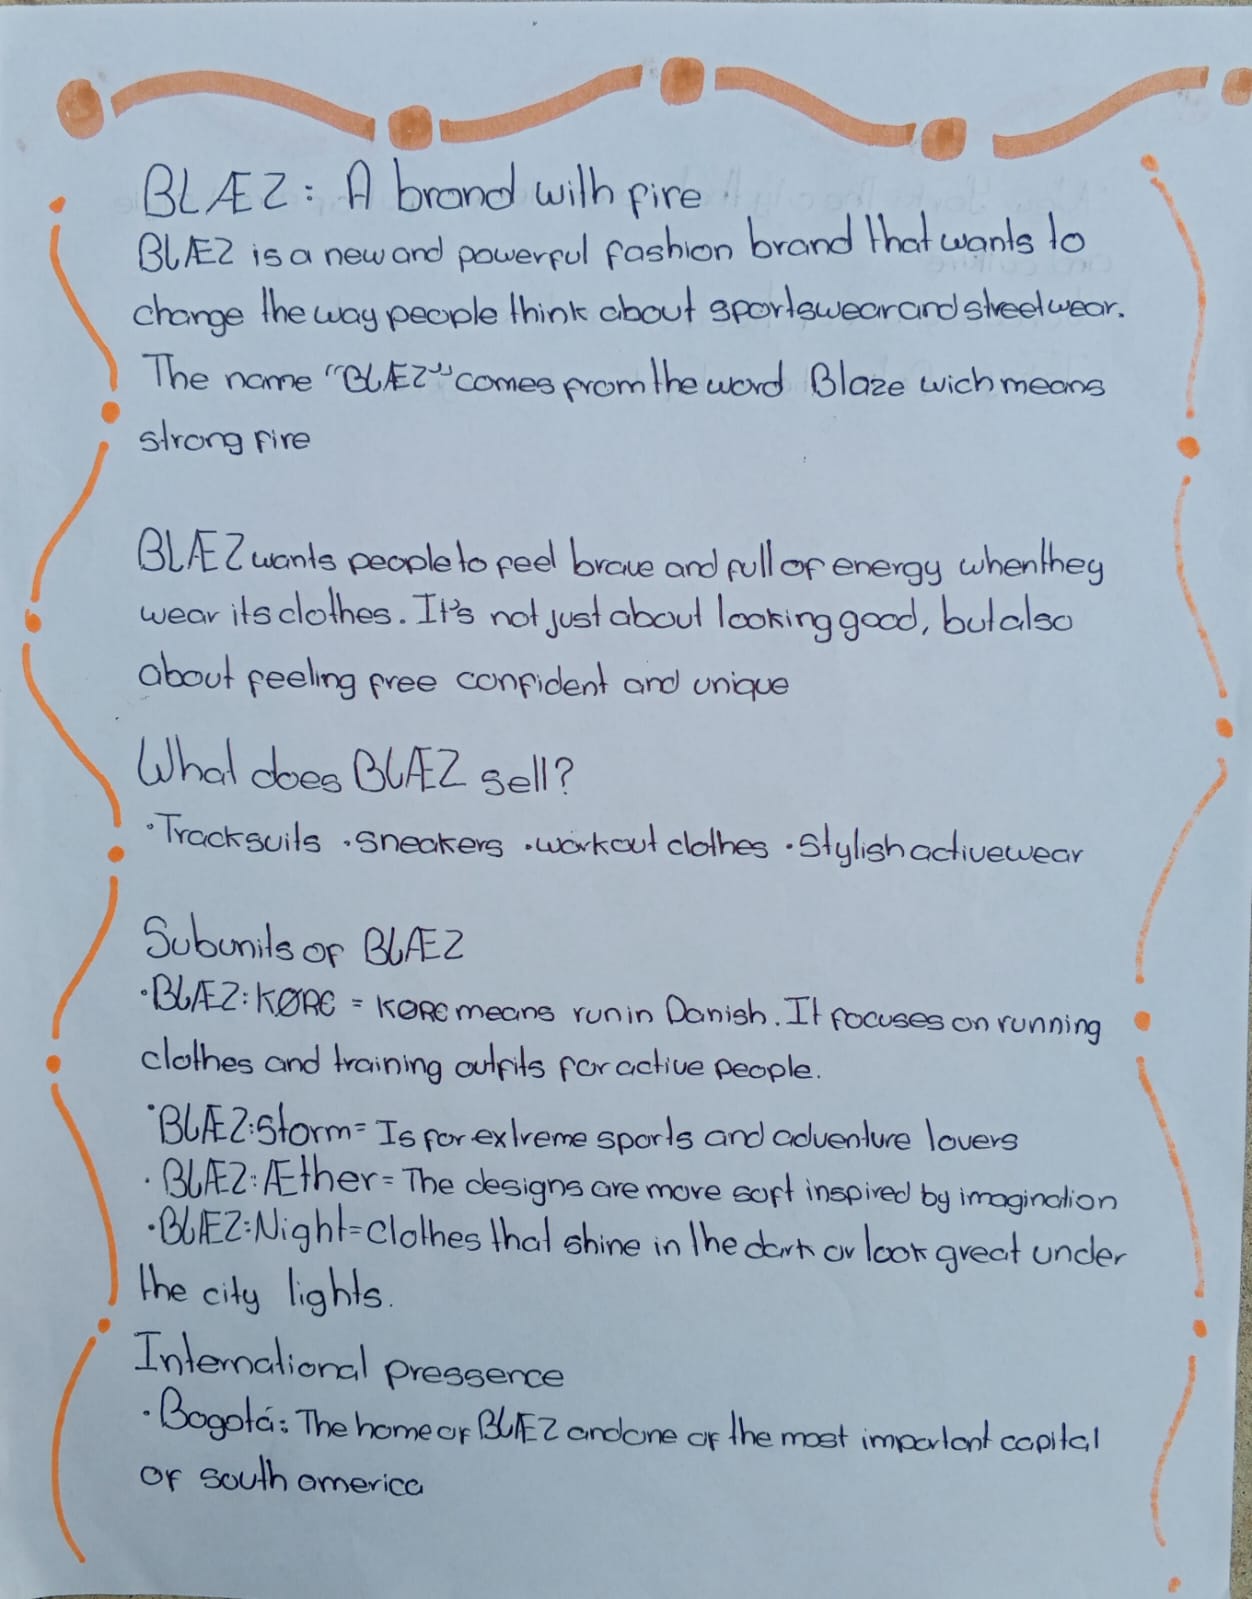 BLÆZ: A brand with fire
BLÆZ is a new and powerful fashion brand that wants to
change the way people think about sportswear and streetwear.
The name "BLÆZ" comes from the word Blaze wich means
strong fire
BLÆZ wants people to feel brave and full of energy when they
wear its clothes. It's not just about looking good, but also
about feeling free confident and unique
What does BLÆZ sell?
·Tracksuits ·sneakers ·workout clothes ·Stylish activewear
Subunits of BLÆZ
·BLÆZ:KØRE = KØRE means run in Danish. It focuses on running
clothes and training outfits for active people.
·BLÆZ:Storm= Is for extreme sports and adventure lovers
·BLÆZ:Æther= The designs are more soft inspired by imagination
·BLÆZ:Night=clothes that shine in the dark or look great under
the city lights.
International pressence
·Bogotá: The home of BLÆZ and one of the most important capital
of south america